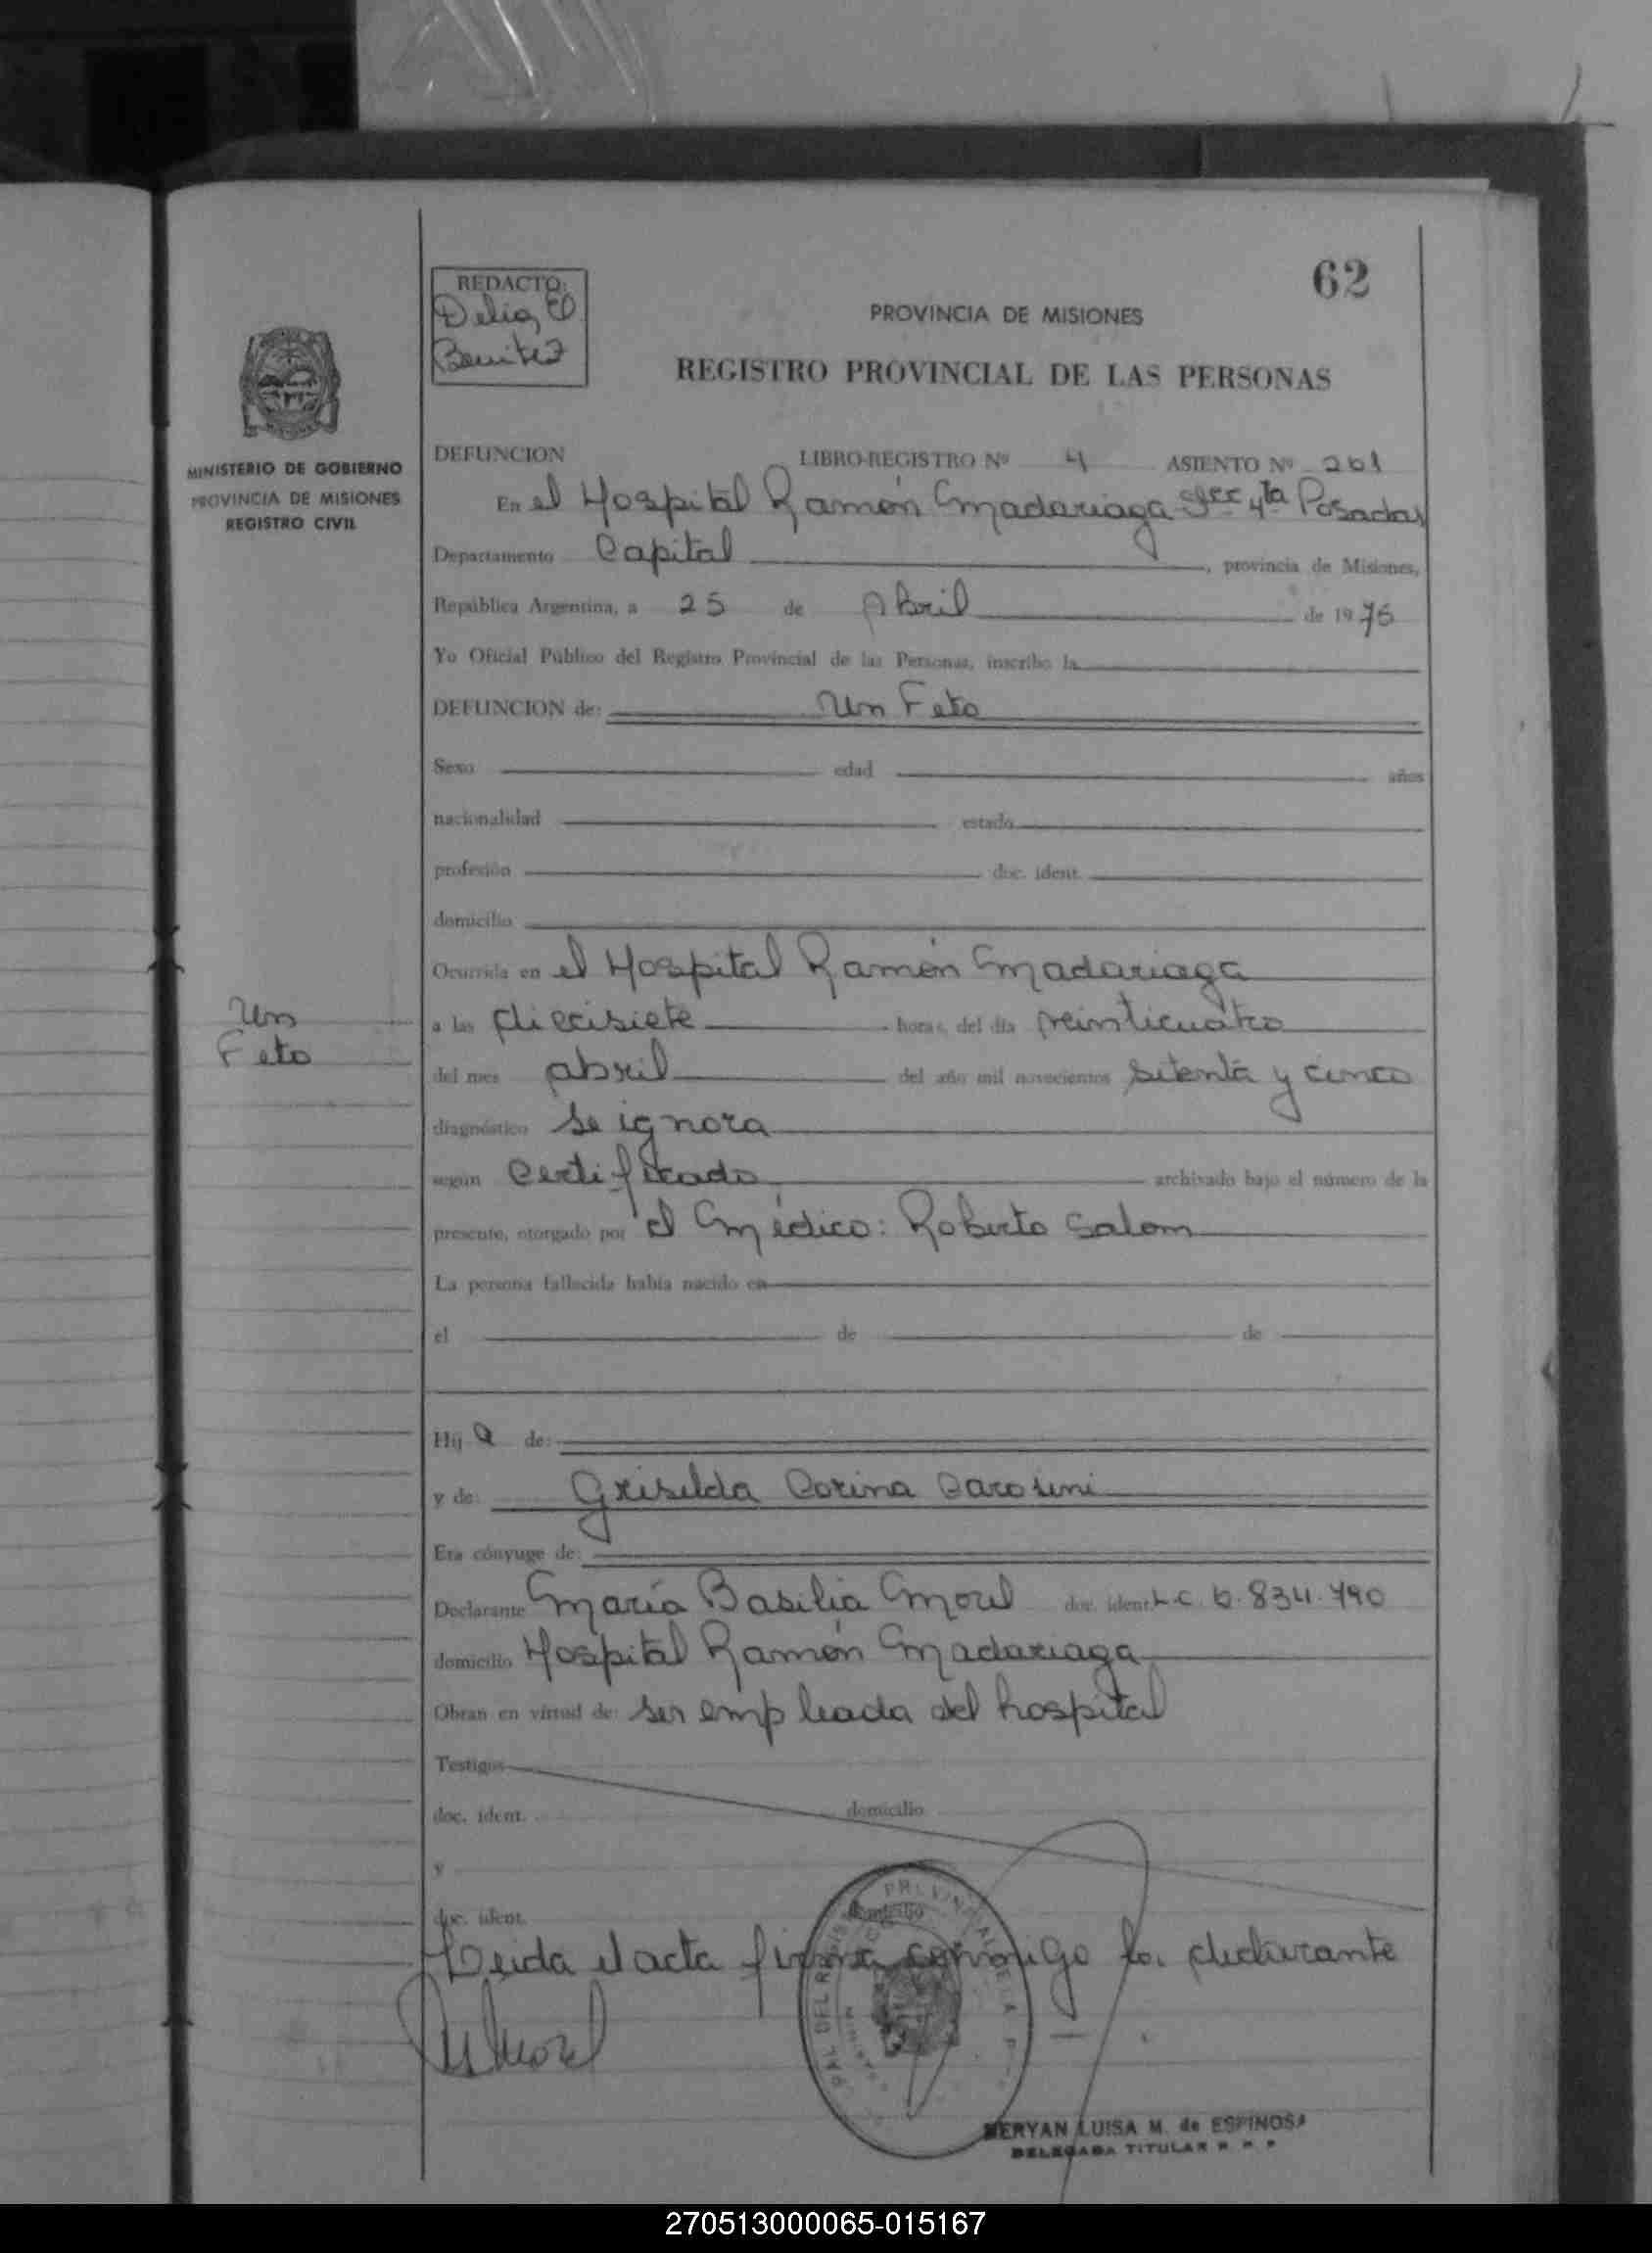 62
REDACTO:
Delia E
Benitez
PROVINCIA DE MISIONES
REGISTRO PROVINCIAL DE LAS PERSONAS
MINISTERIO DE GOBIERNO
PROVINCIA DE MISIONES
REGISTRO CIVIL
DEFUNCION LIBRO-REGISTRO Nº 4 ASIENTO Nº 261
En el Hospital Ramón Madariaga Secc 4ta Posadas
Departamento Capital, provincia de Misiones,
República Argentina, a 25 de Abril de 1975
Yo Oficial Público del Registro Provincial de las Personas, inscribo la
DEFUNCION de: Un Feto
Sexo edad años
nacionalidad estado
profesión doc. ident.
domicilio
Ocurrida en el Hospital Ramón Madariaga
Un
Feto
a las diecisiete horas, del día veinticuatro
del mes abril del año mil novecientos setenta y cinco
diagnóstico se ignora
según certificado archivado bajo el número de la
presente, otorgado por el Médico: Roberto Salom
La persona fallecida había nacido en
el de de
Hij a de:
y de: Griselda Corina Carosini
Era cónyuge de:
Declarante María Basilia Morel doc. ident. L.C. 6.834.790
domicilio Hospital Ramón Madariaga
Obran en virtud de: ser empleada del hospital
Testigos
doc. ident. domicilio
y
doc. ident. domicilio
Leida el acta firma conmigo la declarante
Morel
MERYAN LUISA M. de ESPINOSA
DELEGADA TITULAR R. P. P.
270513000065-015167